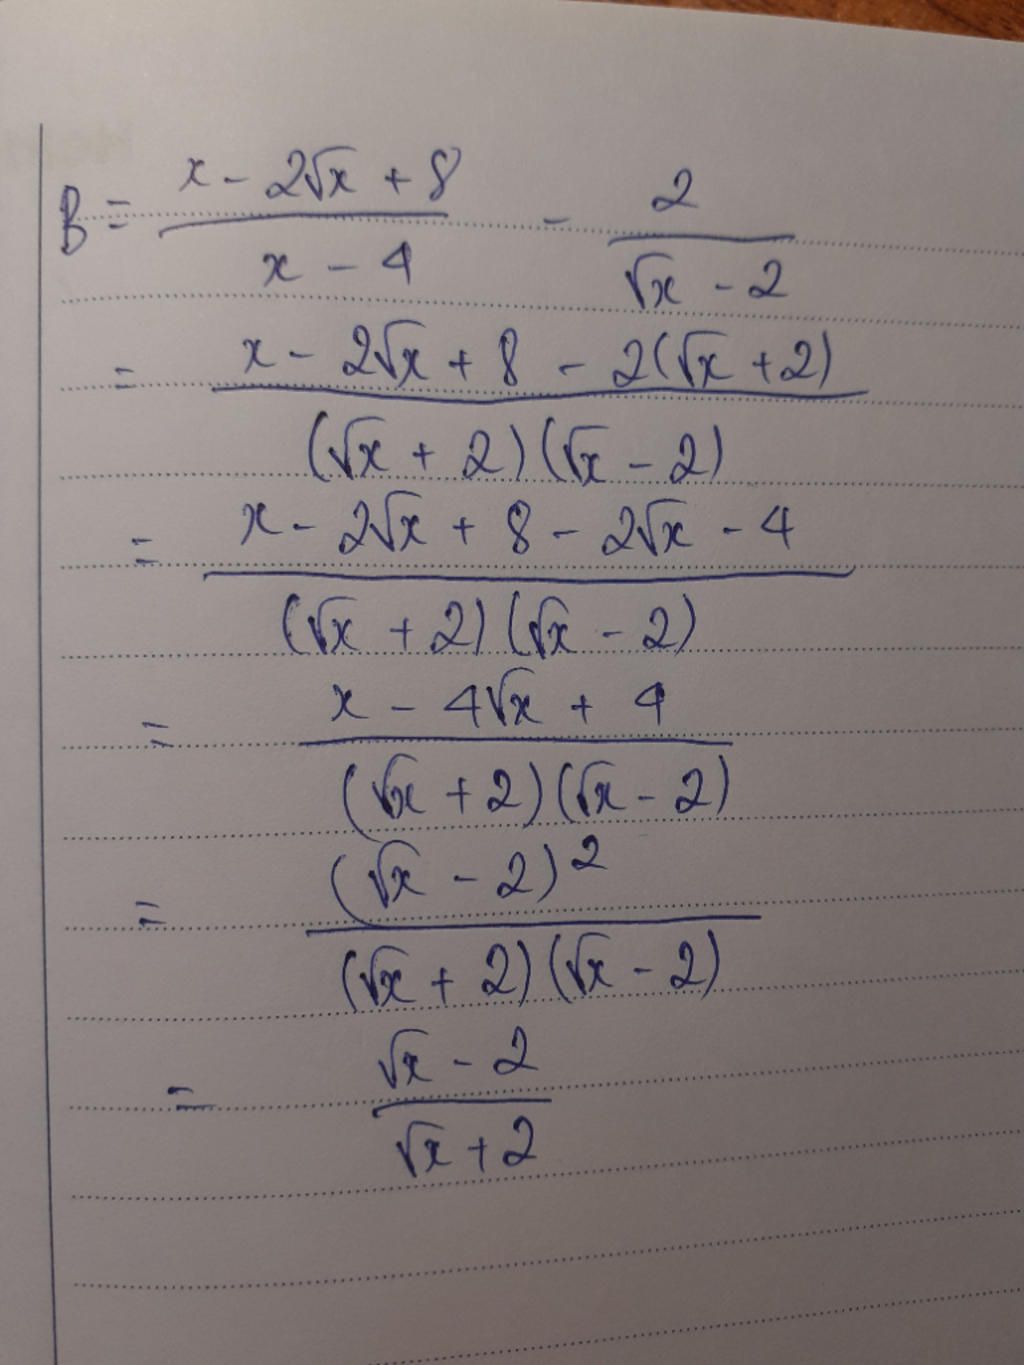 B = (x - 2√x + 8)/(x - 4) - 2/(√x - 2)
= (x - 2√x + 8 - 2(√x + 2))/((√x + 2)(√x - 2))
= (x - 2√x + 8 - 2√x - 4)/((√x + 2)(√x - 2))
= (x - 4√x + 4)/((√x + 2)(√x - 2))
= (√x - 2)²/((√x + 2)(√x - 2))
= (√x - 2)/(√x + 2)